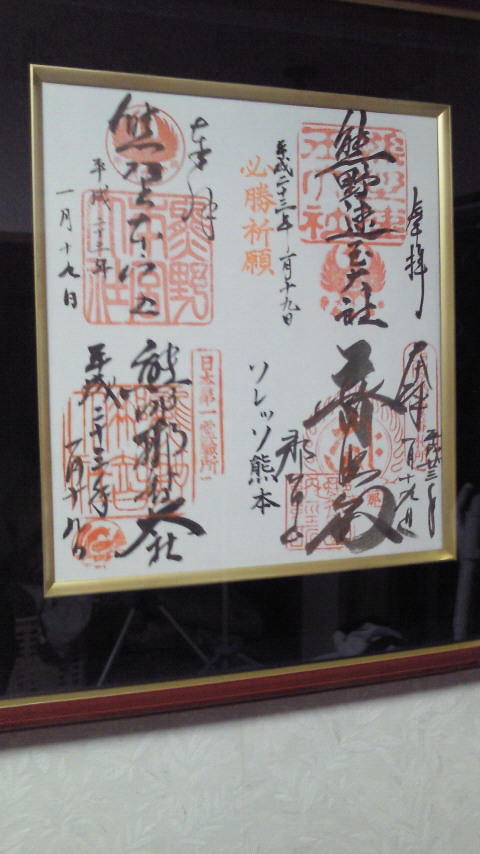 奉拝
熊野速玉大社
平成二十三年一月十九日
必勝祈願
奉拝
熊野本宮大社
平成二十三年
一月十九日
奉拝
平成廿三年
一月十九日
普照殿
那智山
ソレッソ熊本
日本第一霊験所
熊野那智大社
平成二十三年
一月十九日